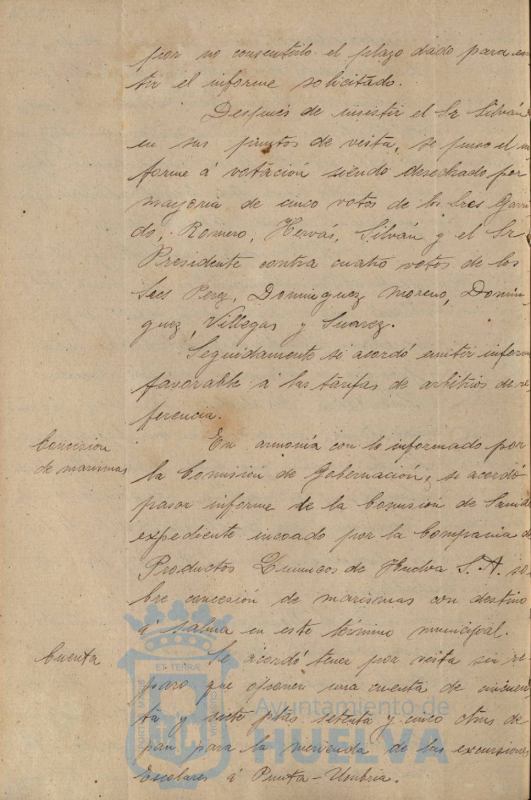 por no consentirlo el plazo dado para emi
tir el informe solicitado.
Después de insistir el Sr Silván
en sus puntos de vista, se puso el in
forme á votación siendo desechado por
mayoria de cinco votos de los Sres Garri
do, Romero, Hervás, Silván y el Sr
Presidente contra cuatro votos de los
Sres Perez, Dominguez Moreno, Domin
guez, Villegas y Suarez.
Seguidamente se acordó emitir inform
favorable á las tarifas de arbitrios de re
ferencia.
Concesion
de marismas
En armonía con lo informado por
la Comisión de Gobernación, se acordó
pasar informe de la Comision de Sanid
expediente incoado por la Compania de
Productos Quimicos de Huelva S.A. so
bre concesión de marismas con destino
á salina en este término municipal.
Cuenta
Se acordó tener por vista sin re
paro que oponer una cuenta de cincuen
ta y siete ptas setenta y cinco ctms de
pan para la merienda de las excursiones
Escolares á Punta-Umbria.
Ayuntamiento de
HUELVA